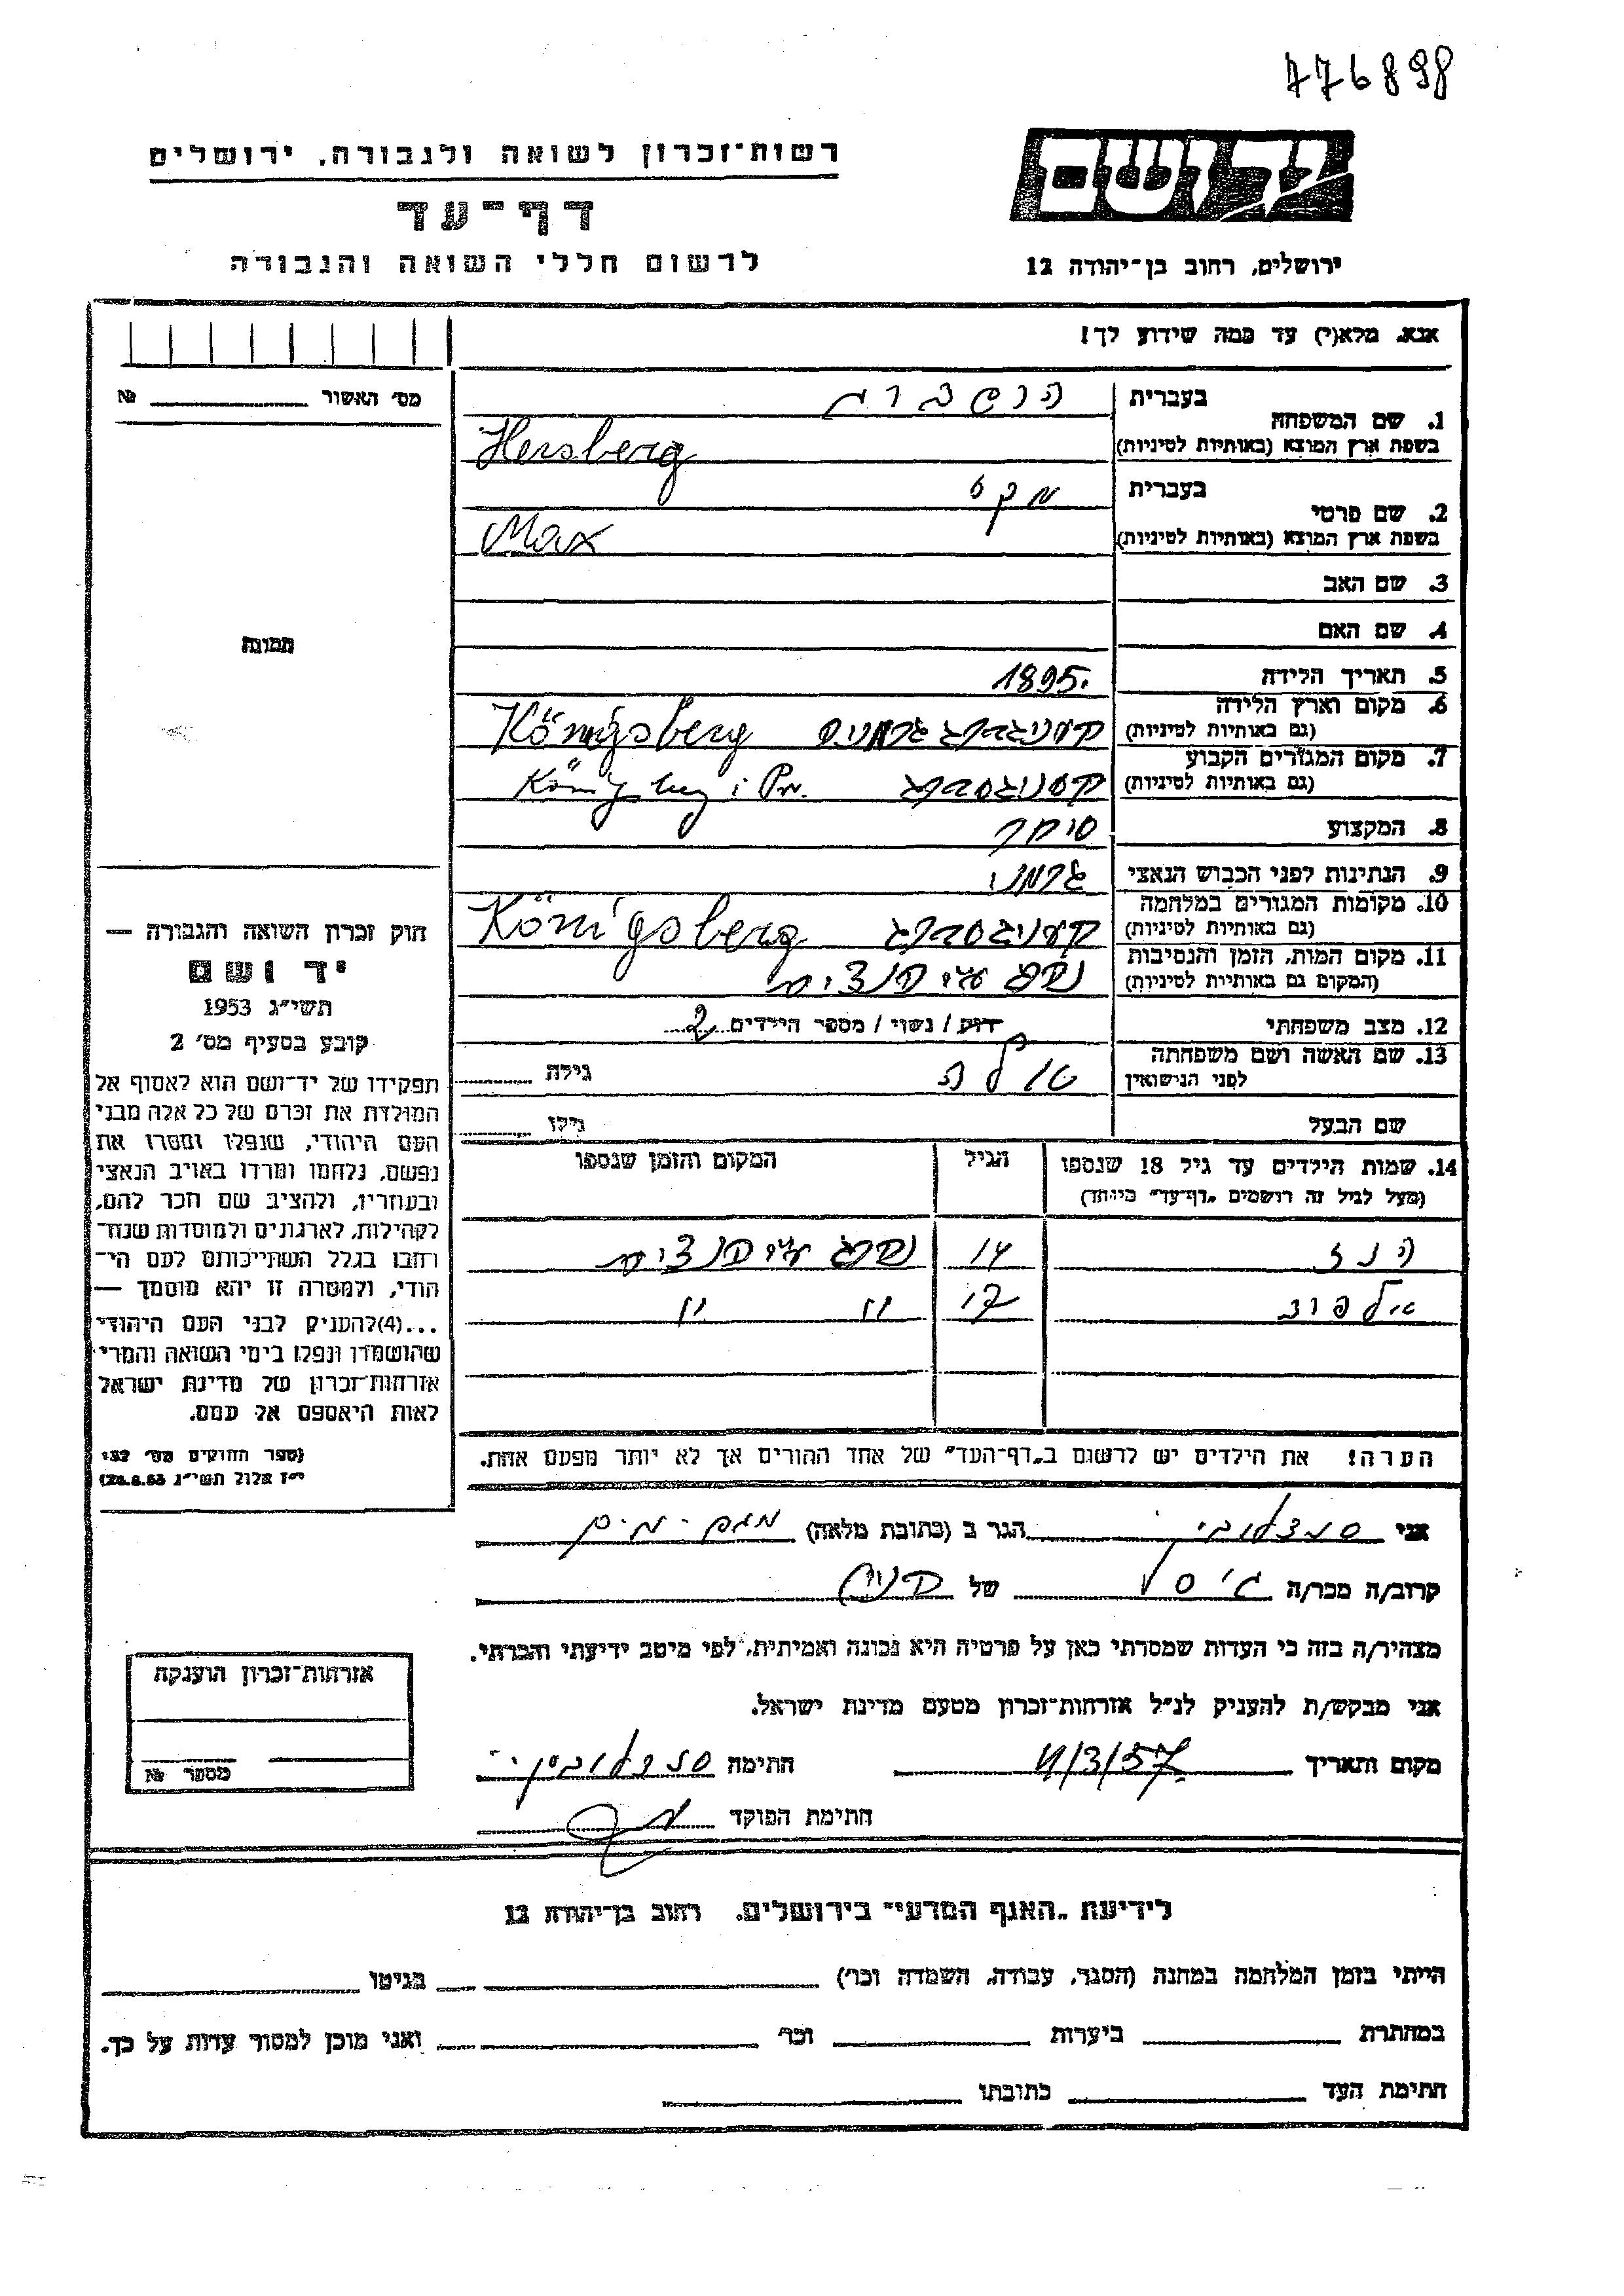 776898
ידושם
רשות־זכרון לשואה ולגבורה, ירושלים
דף־עד
ירושלים, רחוב בן־יהודה 12
לרשום חללי השואה והגבורה
אנא, מלא(י) עד כמה שידוע לך!
מס׳ האשור № 
1. שם המשפחה
בעברית
בשפת ארץ המוצא (באותיות לטיניות) Hersberg
2. שם פרטי
בעברית מקס
בשפת ארץ המוצא (באותיות לטיניות) Max
3. שם האב
4. שם האם
תמונה
5. תאריך הלידה 1895.
6. מקום וארץ הלידה
(גם באותיות לטיניות) Königsberg
7. מקום המגורים הקבוע
(גם באותיות לטיניות) Königsberg i Pr.
8. המקצוע סוחר
9. הנתינות לפני הכבוש הנאצי גרמני
10. מקומות המגורים במלחמה
(גם באותיות לטיניות) Königsberg
11. מקום המות, הזמן והנסיבות
(המקום גם באותיות לטיניות) נהרג ע״י הנצים
12. מצב משפחתי רוק / נשוי / מספר הילדים 2
13. שם האשה ושם משפחתה
לפני הנישואין גילה
שם הבעל גילו
14. שמות הילדים עד גיל 18 שנספו הגיל המקום והזמן שנספו
(מעל לגיל זה רושמים „דף־עד״ מיוחד)
הנז 14 נהרג ע״י הנצים
17 " "
הערה! את הילדים יש לרשום ב„דף־העד״ של אחד ההורים אך לא יותר מפעם אחת.
חוק זכרון השואה והגבורה —
יד ושם
תשי״ג 1953
קובע בסעיף מס׳ 2
תפקידו של יד־ושם הוא לאסוף אל
המולדת את זכרם של כל אלה מבני
העם היהודי, שנפלו ומסרו את
נפשם, נלחמו ומרדו באויב הנאצי
ובעוזריו, ולהציב שם וזכר להם,
לקהילות, לארגונים ולמוסדות שנח־
רבו בגלל השתייכותם לעם הי־
הודי, ולמטרה זו יהא מוסמך —
...(4) להעניק לבני העם היהודי
שהושמדו ונפלו בימי השואה והמרי
אזרחות־זכרון של מדינת ישראל
לאות היאספם אל עמם.
(ספר החוקים מס׳ 132
י״ז אלול תשי״ג 28.8.53)
אני הגר ב (כתובת מלאה)
קרוב/ה מכר/ה גיס של
מצהיר/ה בזה כי העדות שמסרתי כאן על פרטיה היא נכונה ואמיתית, לפי מיטב ידיעתי והכרתי.
אני מבקש/ת להעניק לנ״ל אזרחות־זכרון מטעם מדינת ישראל.
מקום ותאריך 4/3/57 חתימה
חתימת הפוקד
אזרחות־זכרון הוענקה
מספר №
לידיעת „האגף המדעי״ בירושלים, רחוב בן־יהודה 12
הייתי בזמן המלחמה במחנה (הסגר, עבודה, השמדה וכו׳) בגיטו
במחתרת ביערות וכו׳ ואני מוכן למסור עדות על כך.
חתימת העד כתובתו